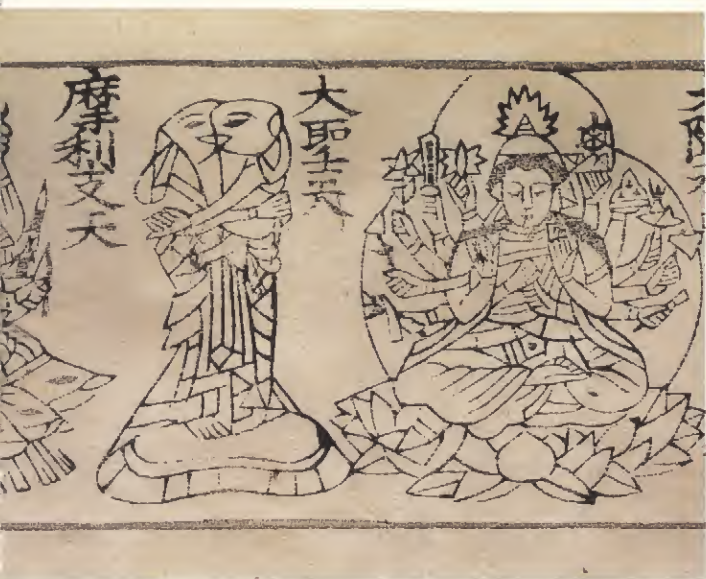 大聖天
摩利支天